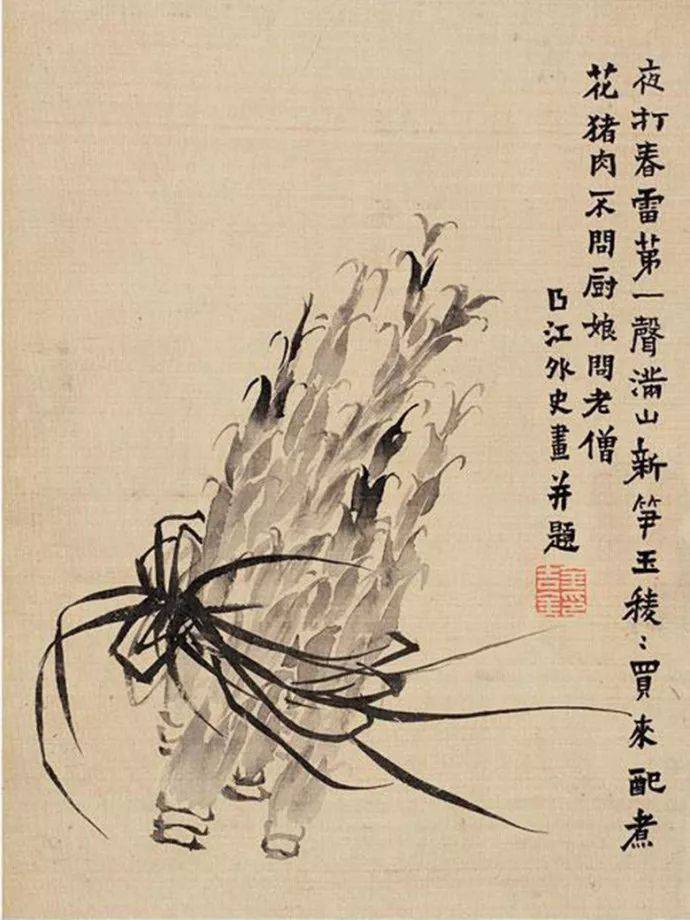 夜打春雷苐一聲滿山新笋玉稜〻買來配煮
花猪肉不問厨娘問老僧
曲江外史畫并題
金吉金印